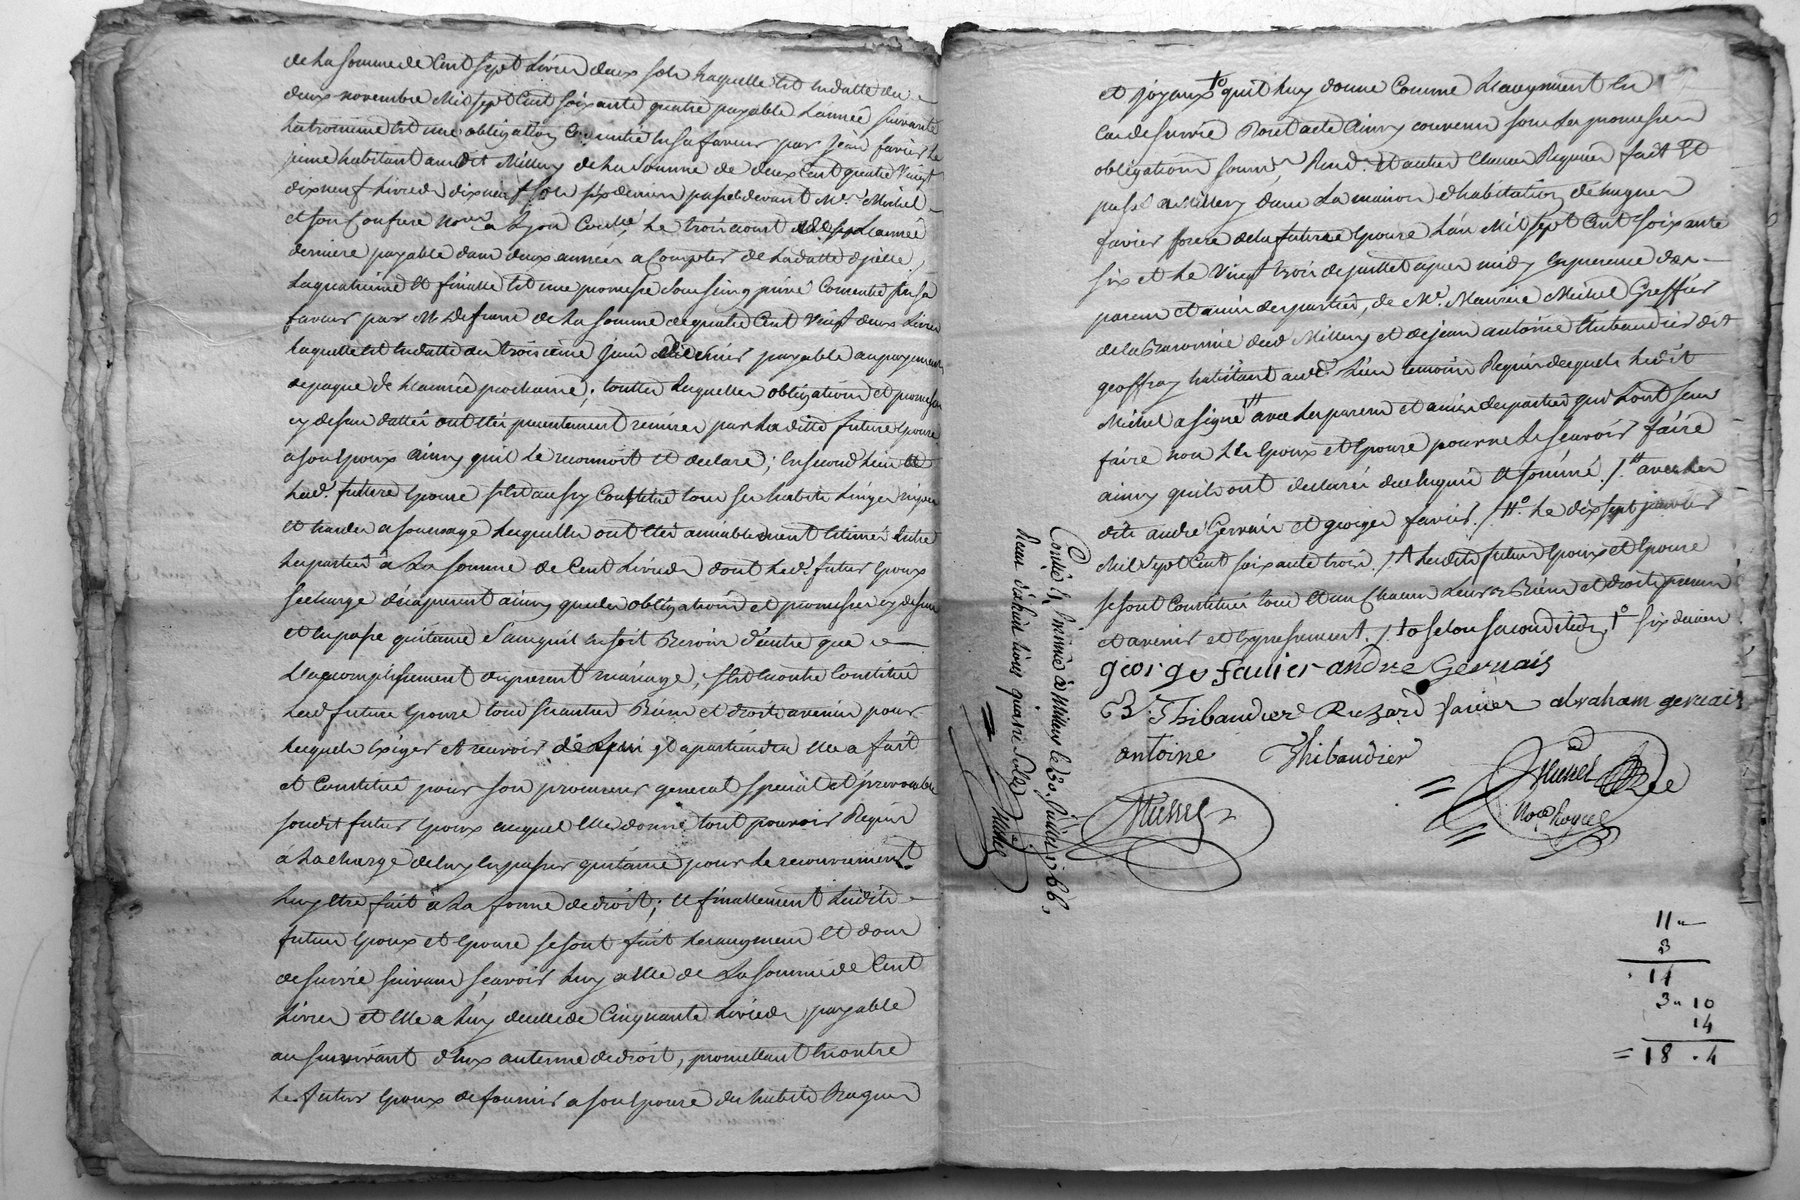 de la somme de Cent sept Livres deux sols laquelle est en datte du
deux novembre Mil sept Cent soixante quatre payable L'année suivante
La troisième est une obligation Consentie en sa faveur par Jean favier le
jeune habitant audit Millery de la Somme de deux Cent quatre Vingt
dix neuf Livres dix neuf sols six deniers passé devant Me. Michel
et son Confrere Nore. à Lyon le trois aoust L'année
derniere payable dans deux années a Compter de la datte d'jcelle
La quatrième et finalle est une promesse sous seing privé Consentie en sa
faveur par Mr. Defrane de la somme de quatre Cent Vingt deux Livres
laquelle est en datte du troisième Juin dernier payable au payement
de paque de L'année prochaine; touttes lesquelles obligations et promesses
cy dessus dattées ont été presentement remises par la ditte future Epouse
a son Epoux ainsy quil le reconnoit et declare; en second Lieu
Lad. future Epouse s'est aussy Constitué tous ses habits Linges nipes
et hardes a son usage lesquelles ont été amiablement estimés Entre
les parties à la somme de Cent Livres dont led. futur Epoux
se charge des apresent ainsy que des obligations et promesses cy dessus
et en passe quitance sans quil en soit Besoin d'autre que
L'accomplissement du present mariage, s'est encontre Constitué
lad future Epouse tous ses autres Biens et droits avenir pour
lesquels Exiger et recevoir de qui jl apartiendra Elle a fait
et Constitué pour son procureur general special et jrrevocable
sondit futur Epoux auquel Elle donne tout pouvoir Requis
à la charge de luy en passer quitance pour le recouvrement
Luy etre fait à la forme de droit; et finallement Lesdits
futurs Epoux et Epouse se sont fait Les augment et dons
de survie suivans scavoir luy a Elle de la somme de Cent
Livres et Elle a Luy de celle de Cinquante Livres payable
au survivant d'Eux au terme de droit, promettant Encontre
Le futur Epoux de fournir a son Epouse des habits Bagues
et joyaux †o quil luy donne Comme L'augment En
Cas de survie Dont acte Ainsy convenu sous les promesses
obligations Soum. Rend. Et autres Clauses Requises fait Et
passé a Millery dans La maison d'habitation de hugues
favier frere de la future Epouse L'an Mil sept Cent soixante
six et Le Vingt trois de juillet apres midy En presence des
parens et amis des parties, de Me. Maurice Michel Greffier
de la Baronnie dud Millery et de jean antoine thibaudier dit
geoffray habitant aud. Lieu temoins Requis desquels Ledit
Michel a signé avec les parens et amis des parties qui L'ont sceu
faire non Les Epoux et Epouse pour ne le scavoir faire
ainsy quils ont declarés de ce Enquis Et sommé. /. avec les
dits andré Gervais et george favier. /. Le dix sept janvier
Mil sept Cent soixante trois. /. Lesdits futurs Epoux et Epouse
se sont Constitués tous et un Chacun Leurs Biens et droits presens
et avenirs et Expressement. /. †o selon sa condition †o six deniers
george favier andre Gervais
B. Thibaudier Ruzard favier abraham gervais
antoine Thibaudier
Michel
Nore. Royal
Controllé à Millery le 30 Juillet 1766.
treize Livres quatre Sols
Michel
11 "
3
14
3 " 10
14
= 18 . 4